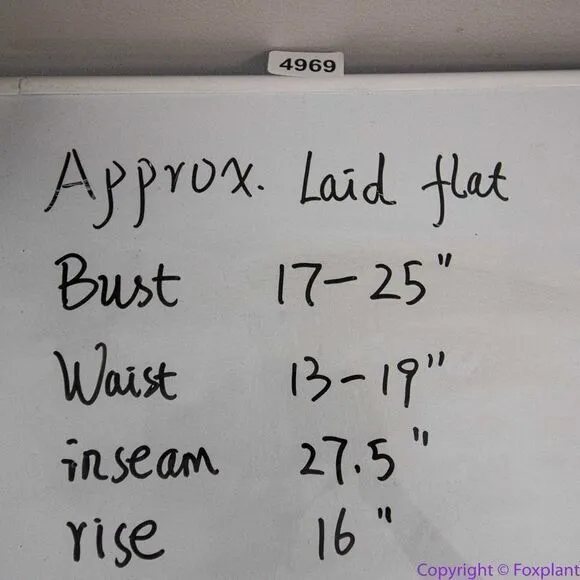 4969
Approx. Laid flat
Bust 17-25"
Waist 13-19"
inseam 27.5"
rise 16"
Copyright © Foxplant